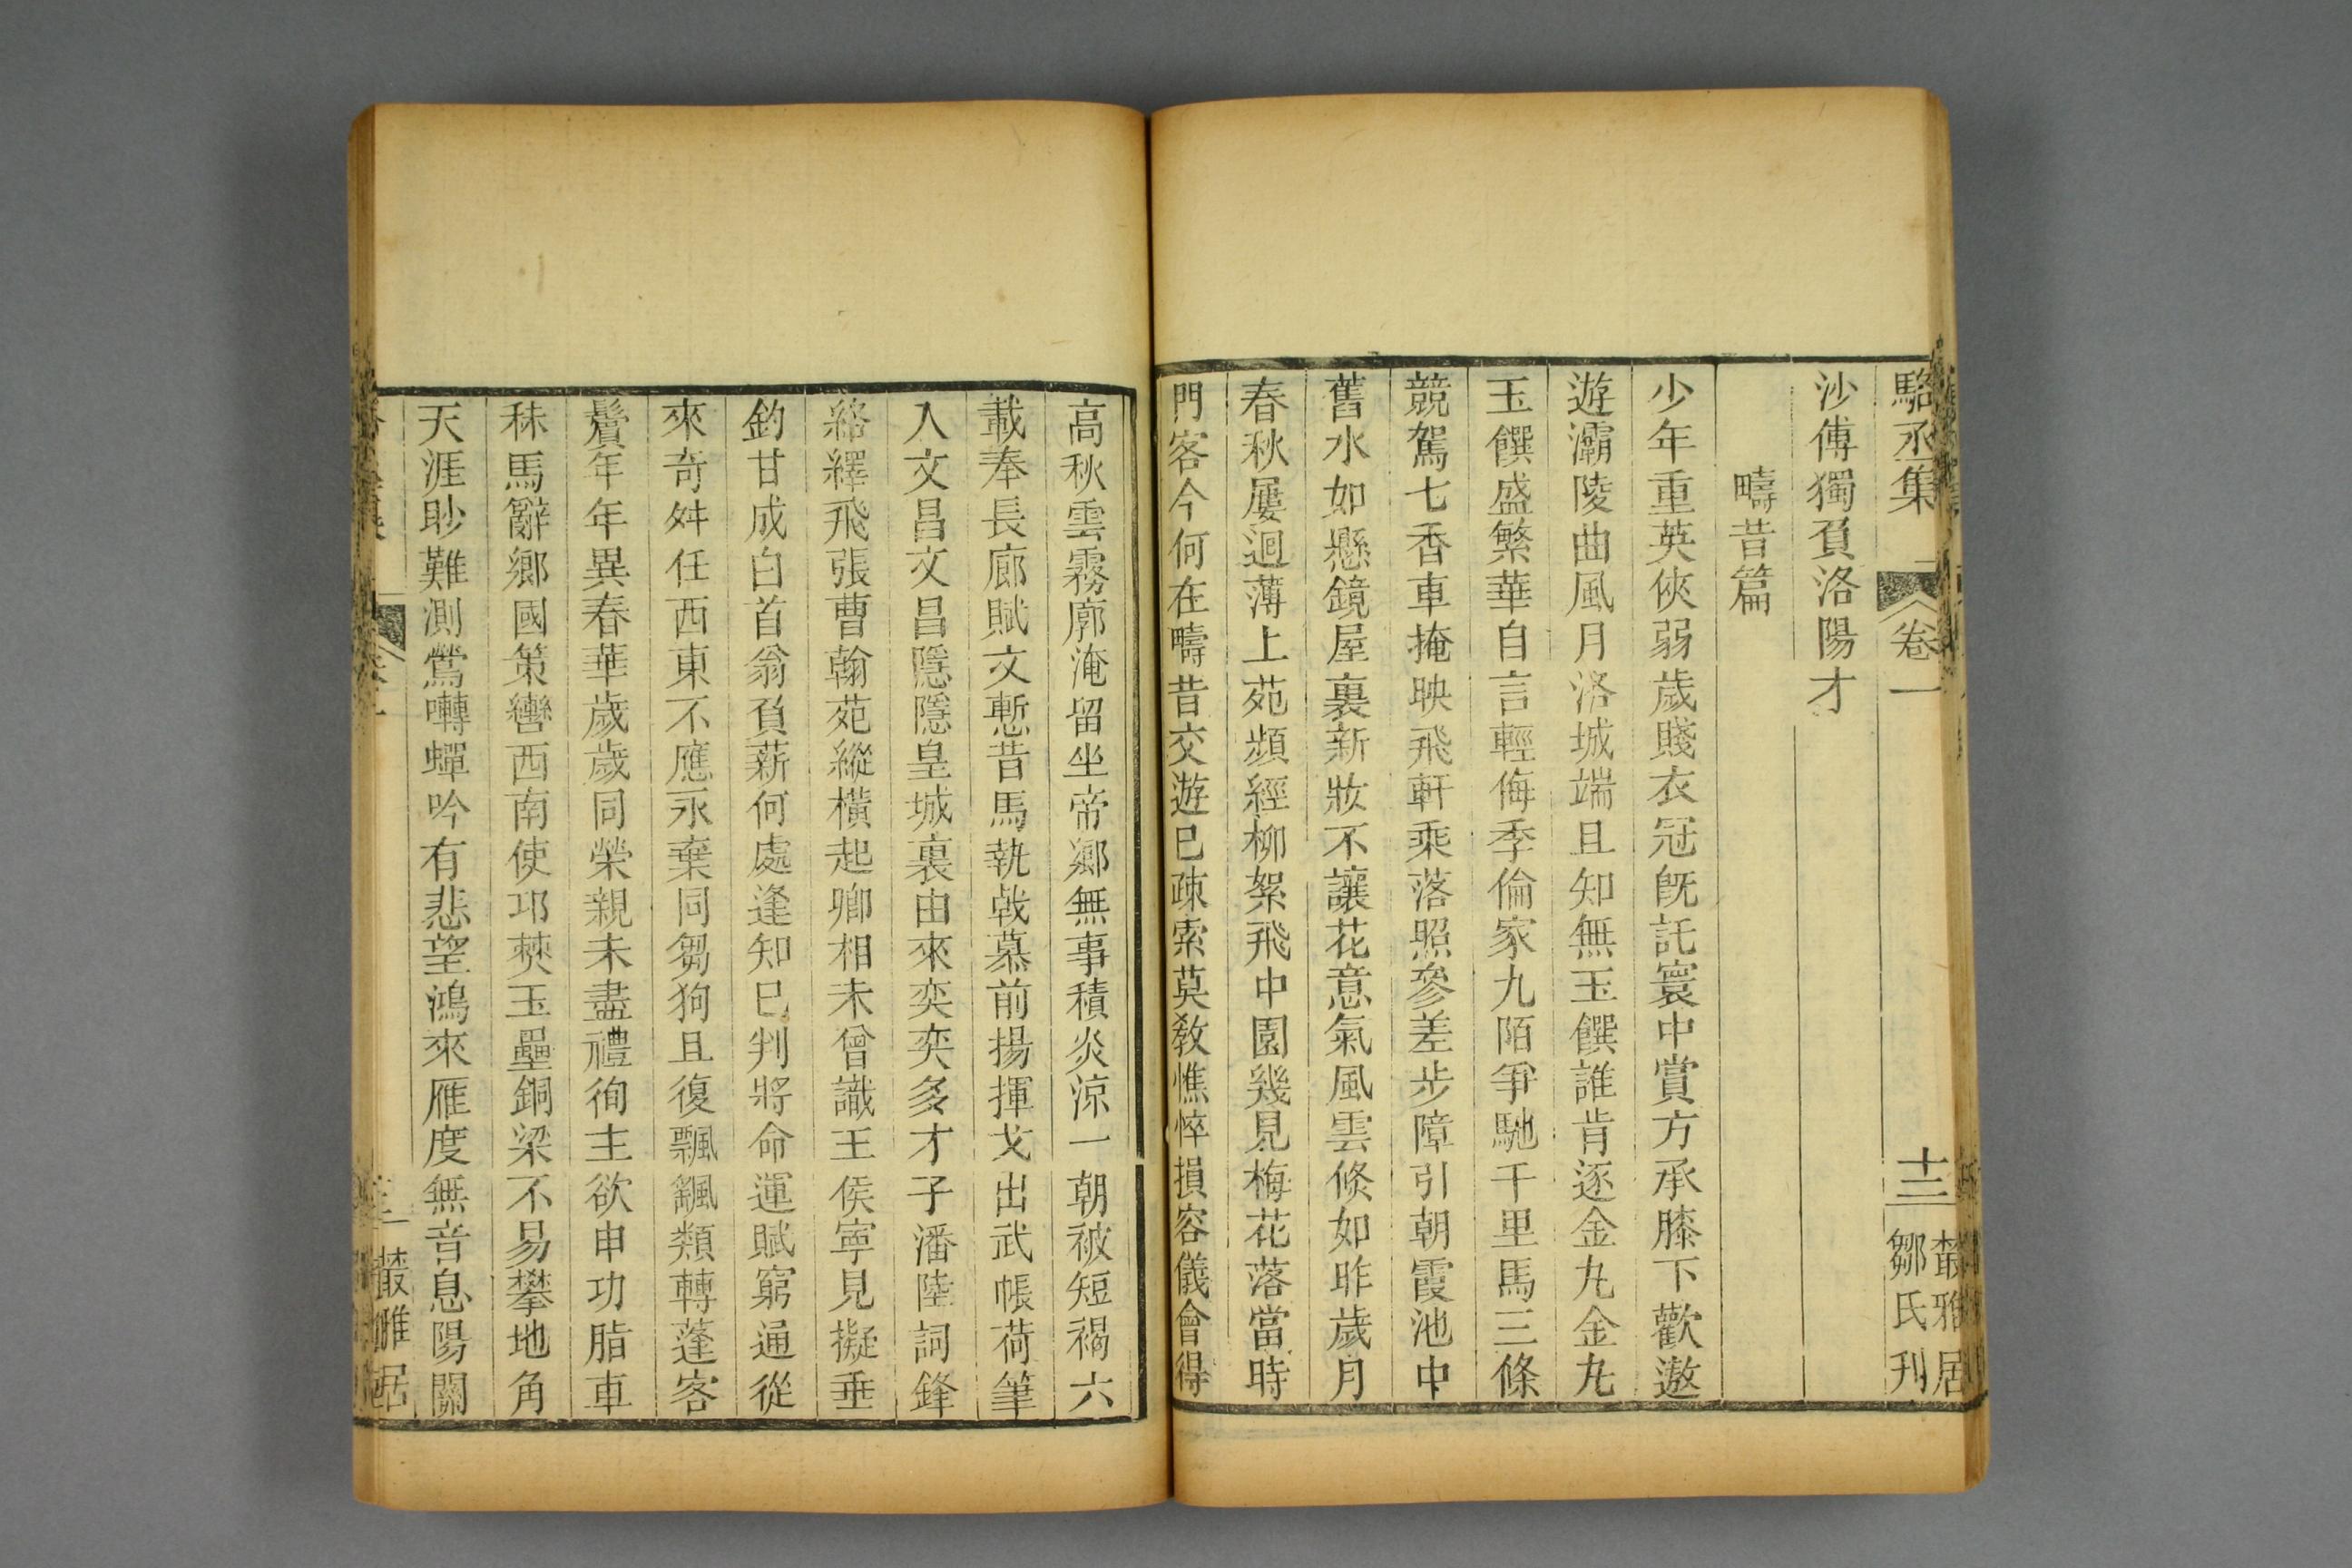 駱丞集
卷一
十三
叢雅居
鄒氏刋
沙傅獨負洛陽才
疇昔篇
少年重英俠弱歲賤衣冠旣託寰中賞方承膝下歡遨
遊灞陵曲風月洛城端且知無玉饌誰肯逐金丸金丸
玉饌盛繁華自言輕侮季倫家九陌爭馳千里馬三條
競駕七香車掩映飛軒乘落照參差步障引朝霞池中
舊水如懸鏡屋裏新妝不讓花意氣風雲倏如昨歲月
春秋屢迴薄上苑頻經柳絮飛中園幾見梅花落當時
門客今何在疇昔交遊已疎索莫敎憔悴損容儀會得
高秋雲霧廓淹留坐帝鄉無事積炎涼一朝被短褐六
載奉長廊賦文慙昔馬執戟慕前揚揮戈出武帳荷筆
入文昌文昌隱隱皇城裏由來奕奕多才子潘陸詞鋒
絡繹飛張曹翰苑縱橫起卿相未曾識王侯寧見擬垂
釣甘成白首翁負薪何處逢知己判將命運賦窮通從
來奇舛任西東不應永棄同芻狗且復飄颻類轉蓬客
鬢年年異春華歲歲同榮親未盡禮徇主欲申功脂車
秣馬辭鄉國策轡西南使邛僰玉壘銅梁不易攀地角
天涯眇難測鶯囀蟬吟有悲望鴻來雁度無音息陽關
叢雅居